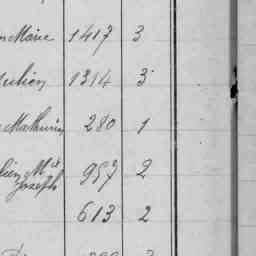 Marie 1417 3
Julien 1314 3
Mathurin 280 1
Mie
Joseph 957 2
613 2